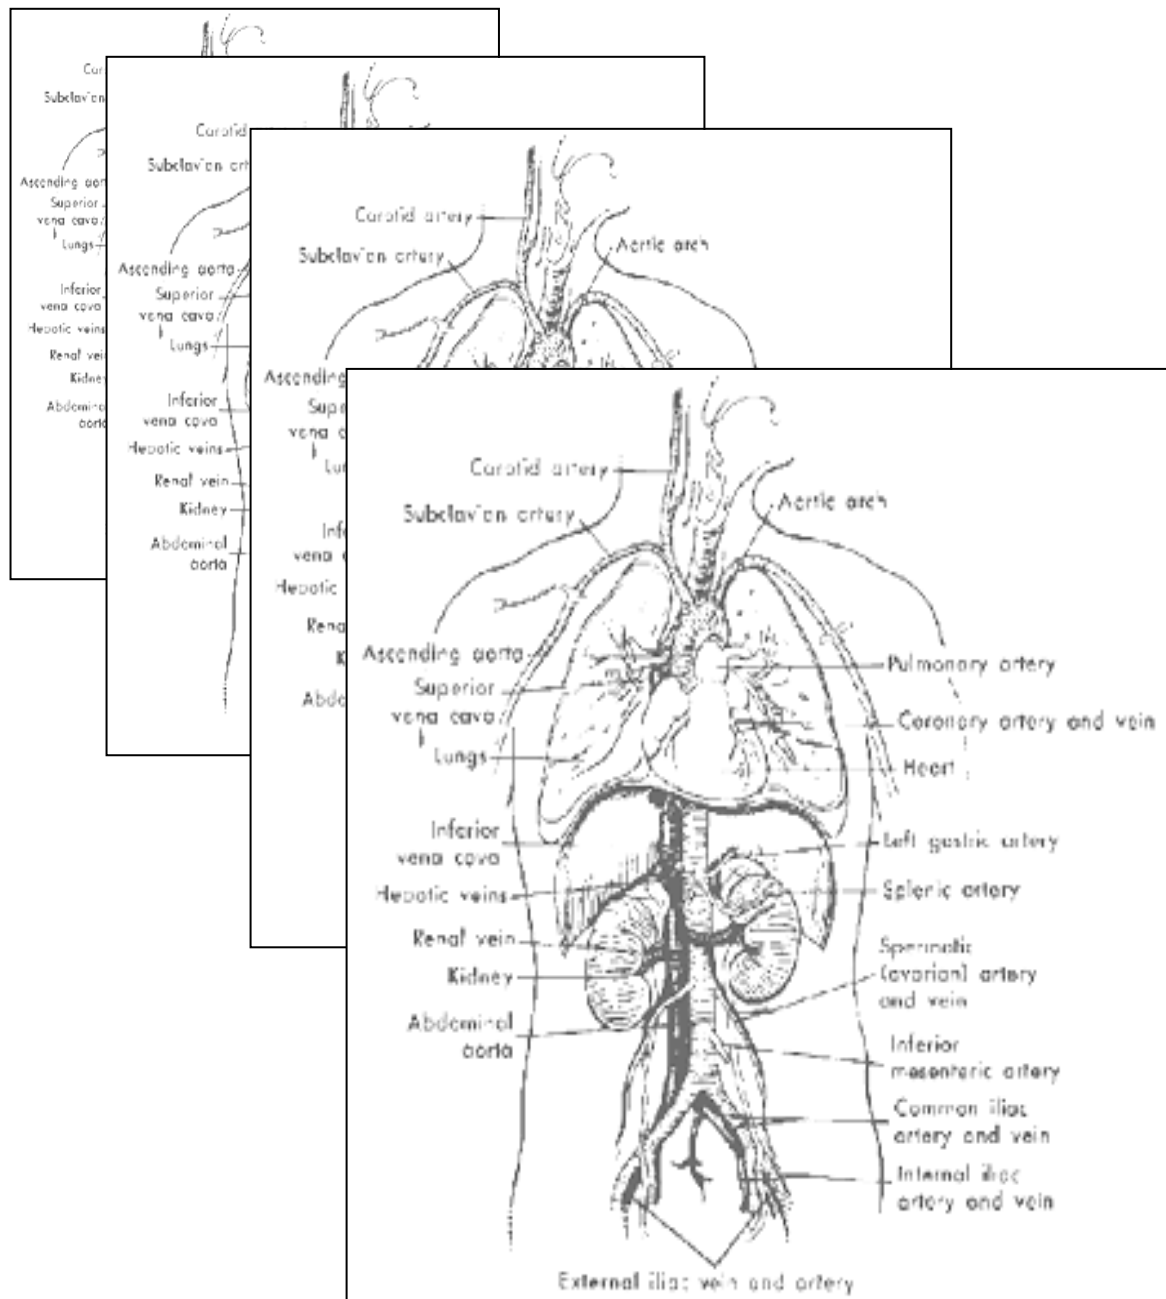 Car
Subclavian
Ascending aor
Superior
vena cava
Lungs
Inferior
vena cava
Hepatic veins
Renal vei
Kidney
Abdomina
aorta
Carotid
Subclavian art
Ascending aorta
Superior
vena cava
Lungs
Inferior
vena cava
Hepatic veins
Renal vein
Kidney
Abdominal
aorta
Carotid artery
Subclavian artery
Aortic arch
Ascending
Supe
vena c
Lun
Infe
vena c
Hepatic
Rena
K
Abdo
Carotid artery
Subclavian artery
Aortic arch
Ascending aorta
Superior
vena cava
Lungs
Pulmonary artery
Coronary artery and vein
Heart
Inferior
vena cava
Hepatic veins
Renal vein
Kidney
Abdominal
aorta
Left gastric artery
Splenic artery
Spermatic
(ovarian) artery
and vein
Inferior
mesenteric artery
Common iliac
artery and vein
Internal iliac
artery and vein
External iliac vein and artery